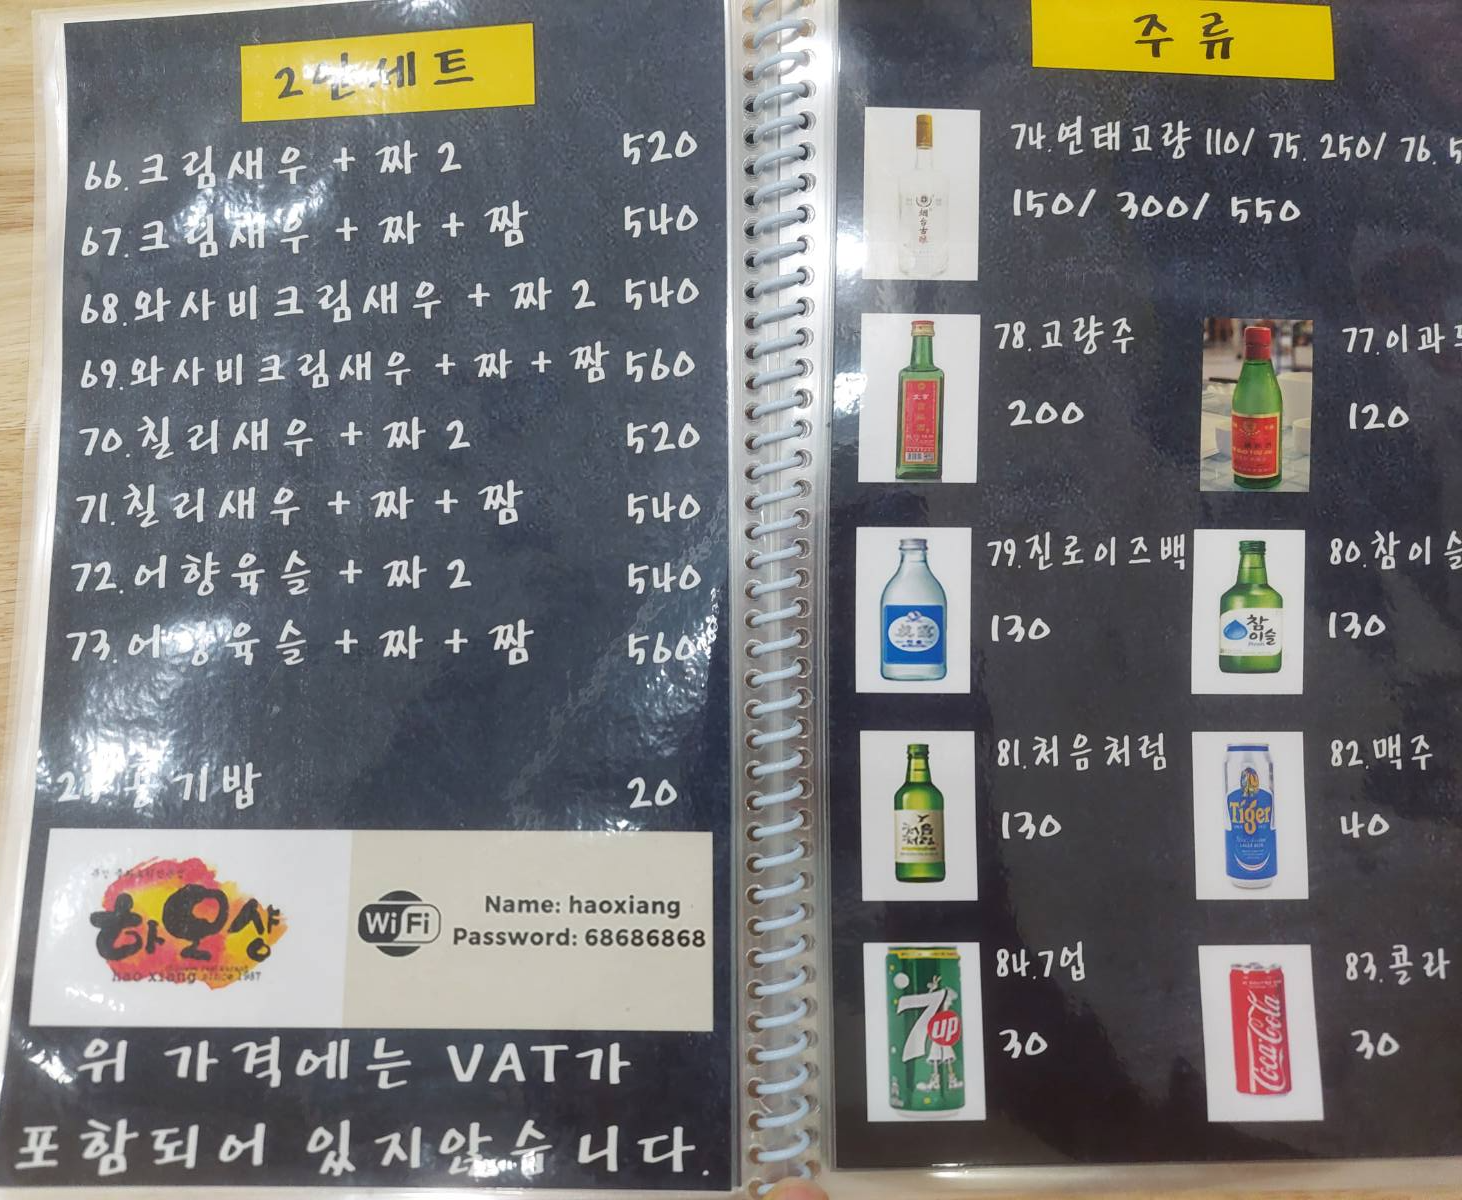 2인세트
66.크림새우 + 짜 2 520
67.크림새우 + 짜 + 짬 540
68.와사비크림새우 + 짜 2 540
69.와사비크림새우 + 짜 + 짬 560
70.칠리새우 + 짜 2 520
71.칠리새우 + 짜 + 짬 540
72.어향육슬 + 짜 2 540
73.어향육슬 + 짜 + 짬 560
공기밥 20
하오샹
hao xiang since 1987
WiFi
Name: haoxiang
Password: 68686868
위 가격에는 VAT가
포함되어 있지않습니다.
주류
74.연태고량 110/ 75. 250/ 76. 5
150/ 300/ 550
78.고량주
200
77.이과
120
79.진로이즈백
130
80.참이슬
130
참이슬
81.처음처럼
130
처음처럼
82.맥주
40
Tiger
84.7업
30
7up
83.콜라
30
Coca-Cola